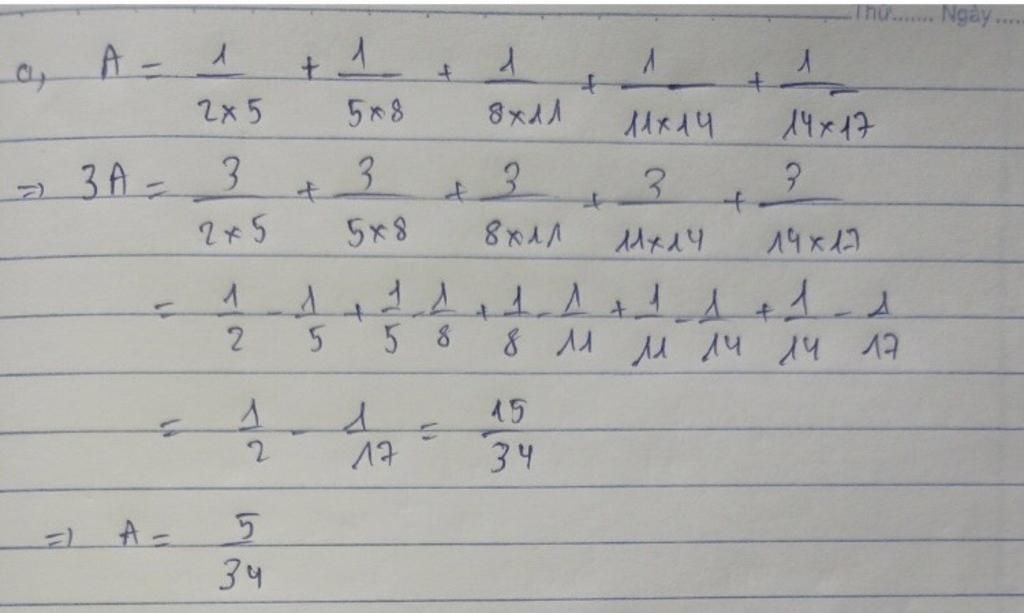 Thứ....... Ngày.....
a, A = 1/(2×5) + 1/(5×8) + 1/(8×11) + 1/(11×14) + 1/(14×17)
=> 3A = 3/(2×5) + 3/(5×8) + 3/(8×11) + 3/(11×14) + 3/(14×17)
= 1/2 - 1/5 + 1/5 - 1/8 + 1/8 - 1/11 + 1/11 - 1/14 + 1/14 - 1/17
= 1/2 - 1/17 = 15/34
=> A = 5/34